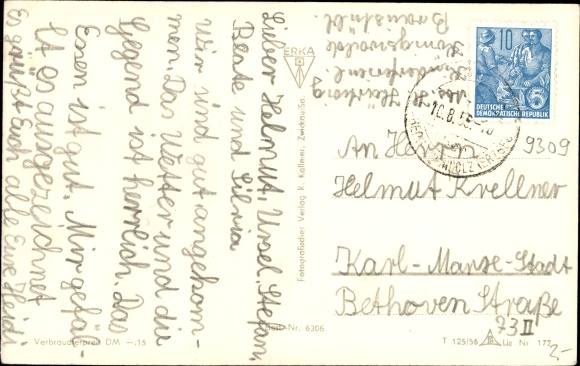 Abs. H. Härtwig
Kinderferienl.
Königswalde
Brünstüb.
ERKA
10
DEUTSCHE
DEMOKRATISCHE REPUBLIK
5
10.8.56
Lieber Helmut, Ursel, Stefan,
Beate und Silvia
wir sind gut angekom-
men. Das Wetter und die
Gegend ist herrlich. Das
Essen ist gut. Mir gefäl-
lt es ausgezeichnet
Es grüßt Euch alle Eure Heidi
Fotografischer Verlag R. Kallmer, Zwickau/Sa.
An Herrn
Helmut Krellner
Karl-Marxe-Stadt
Bethoven Straße
73 II
9309
Best-Nr. 6306
Verbraucherpreis DM -.15
T 125/56
Liz Nr 172
2,-